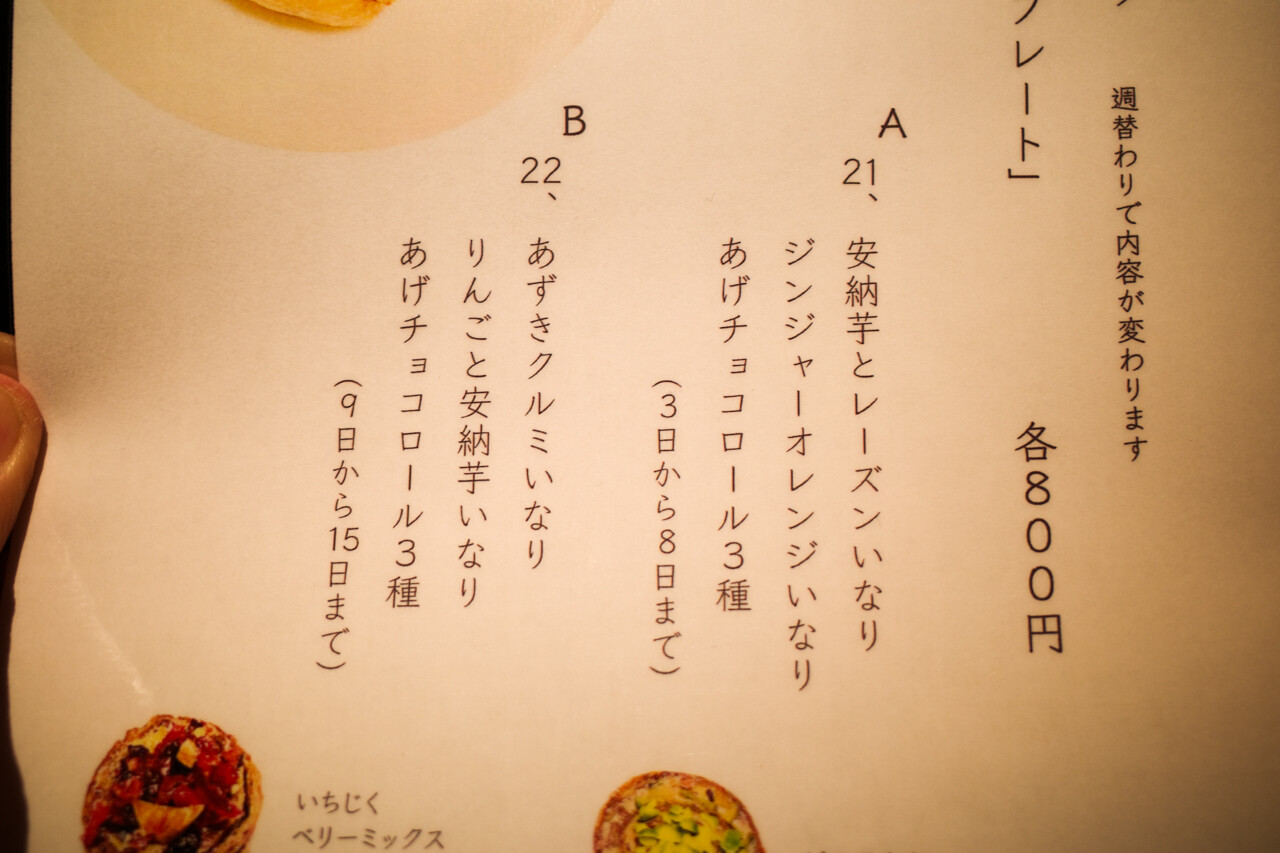 週替わりで内容が変わります
プレート」
各800円
A
21、安納芋とレーズンいなり
ジンジャーオレンジいなり
あげチョコロール3種
(3日から8日まで)
B
22、あずきクルミいなり
りんごと安納芋いなり
あげチョコロール3種
(9日から15日まで)
いちじく
ベリーミックス